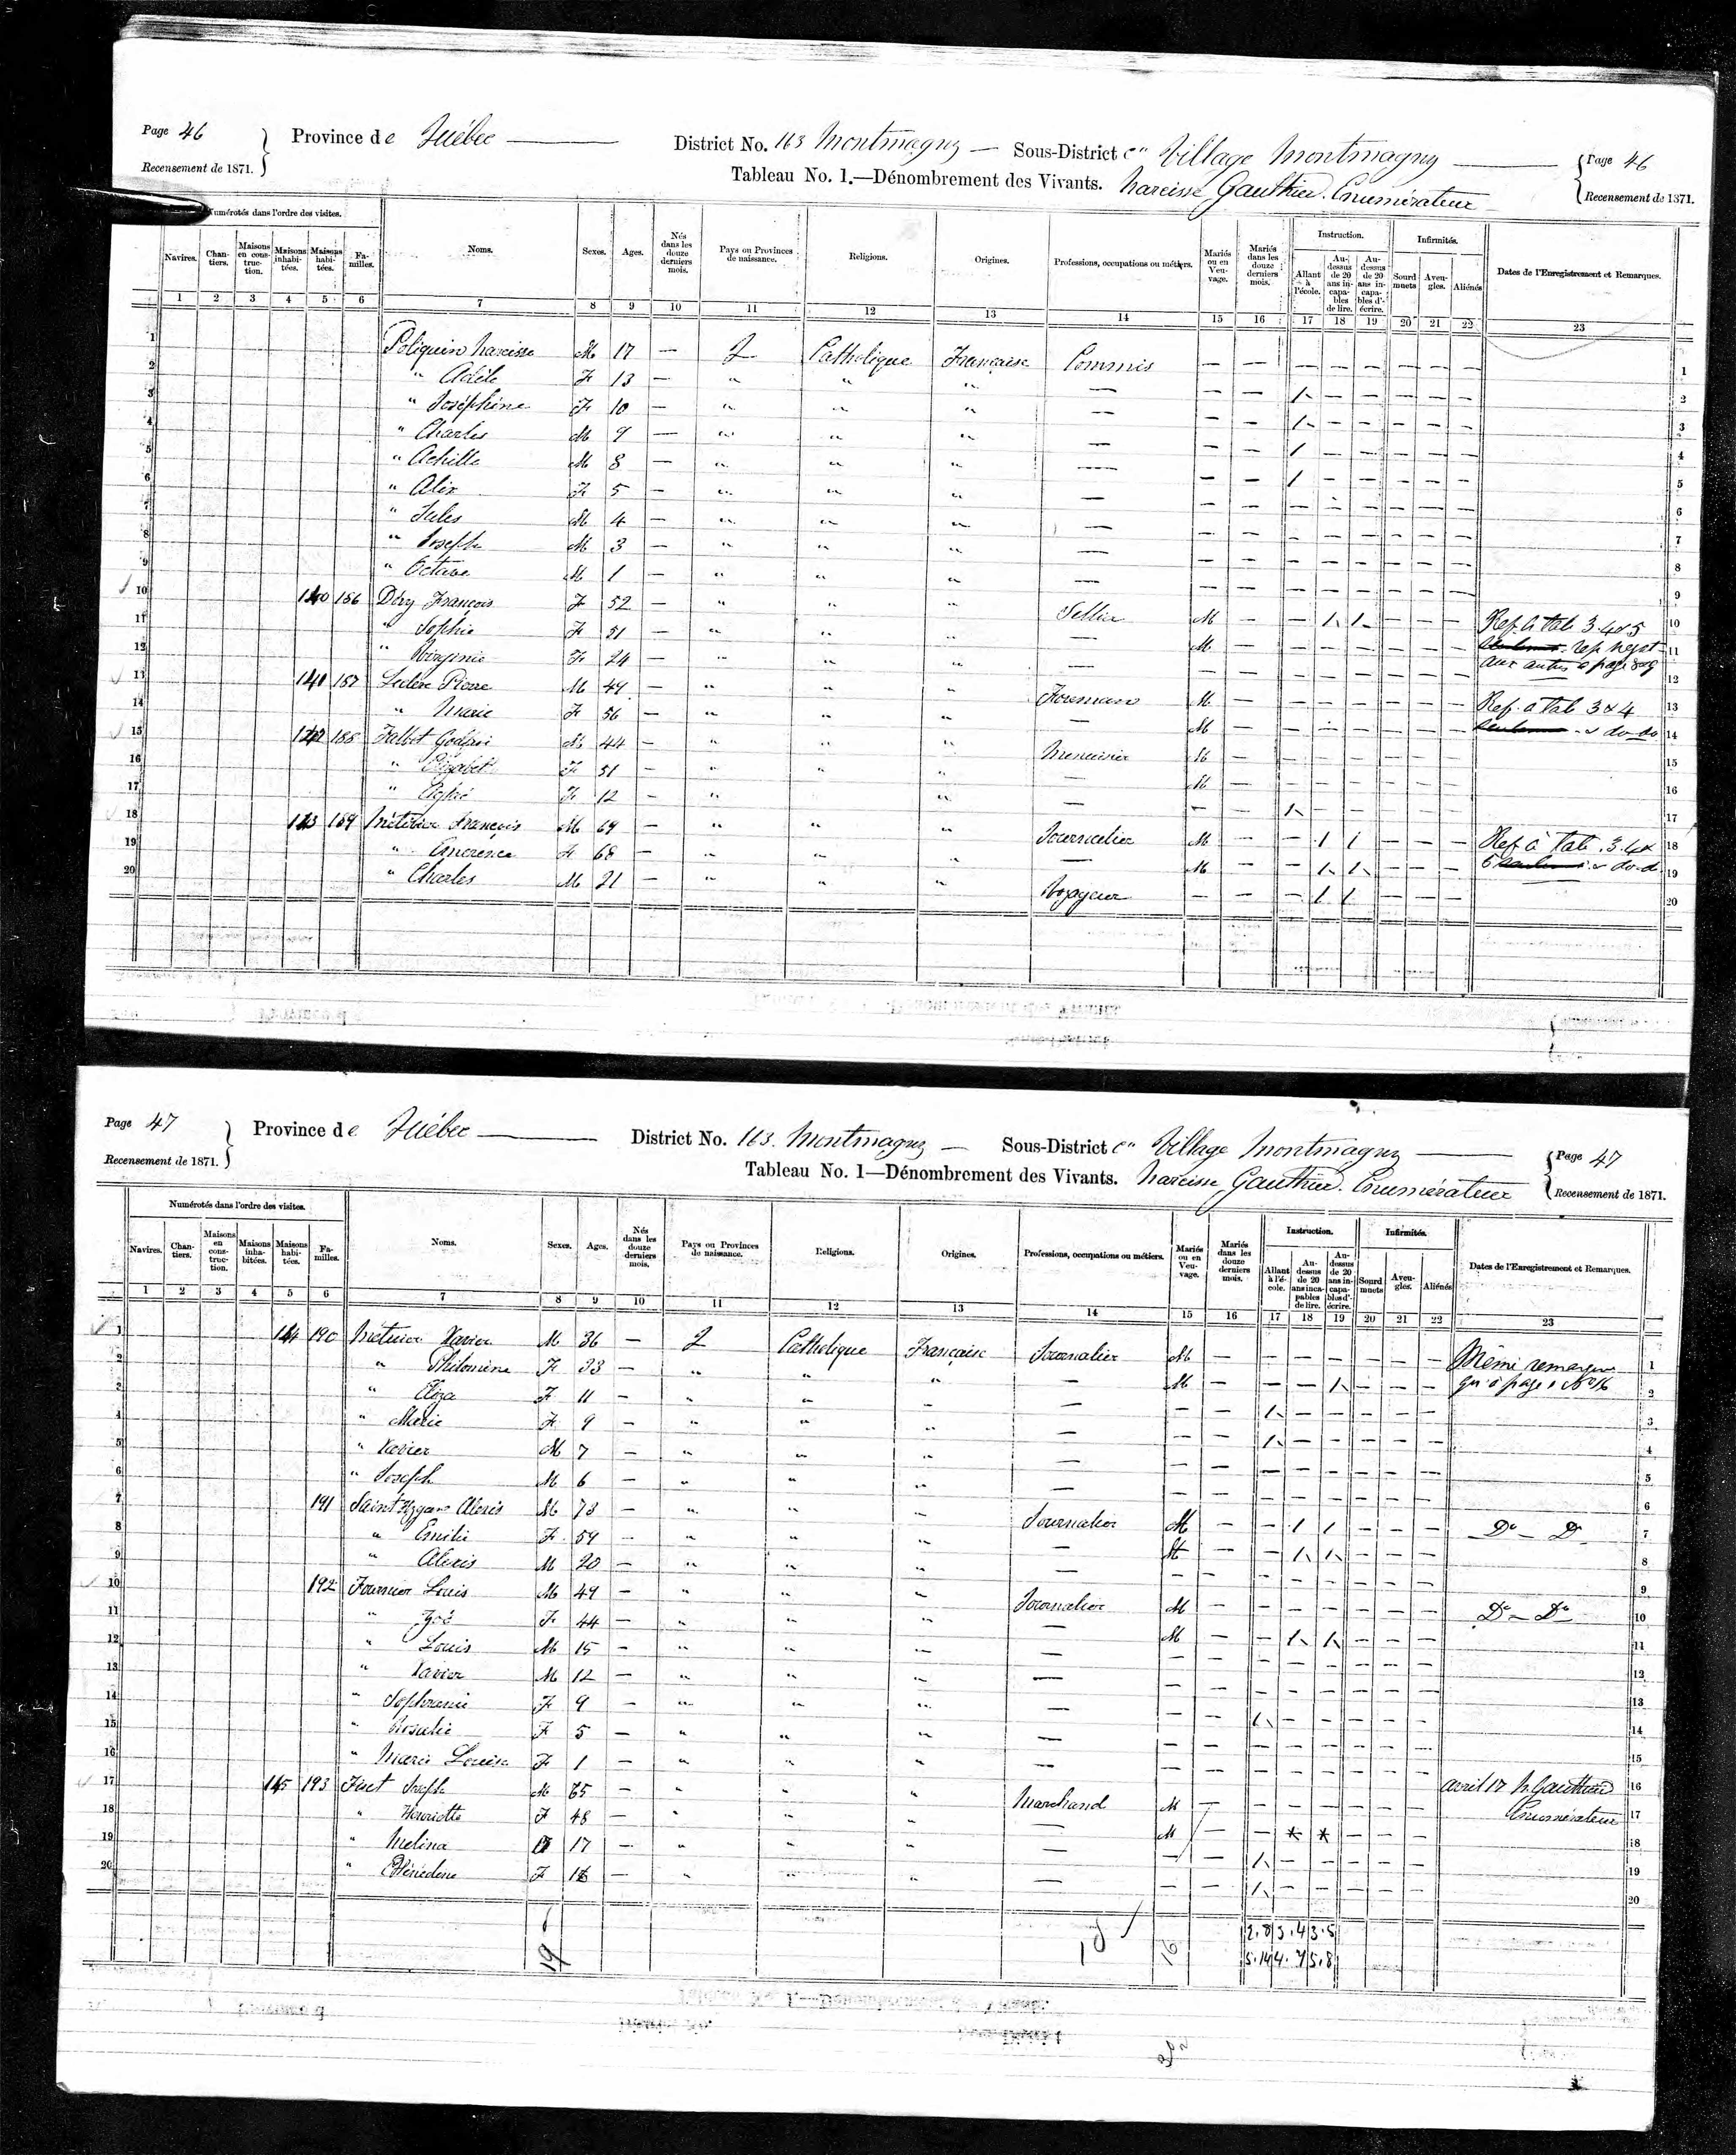 Page 46 Province de Québec District No. 163 Montmagny Sous-District c" Village Montmagny Page 46
Recensement de 1871. Tableau No. 1.—Dénombrement des Vivants. Narcisse Gauthier. Enumérateur Recensement de 1871.
Numérotés dans l'ordre des visites. Instruction. Infirmités.
Navires. Chantiers. Maisons en construction. Maisons inhabitées. Maisons habitées. Familles. Noms. Sexes. Ages. Nés dans les douze derniers mois. Pays ou Provinces de naissance. Religions. Origines. Professions, occupations ou métiers. Mariés ou en Veuvage. Mariés dans les douze derniers mois. Allant à l'école. Au-dessus de 20 ans incapables de lire. Au-dessus de 20 ans incapables d'écrire. Sourd muets Aveugles. Aliénés Dates de l'Enregistrement et Remarques.
1 2 3 4 5 6 7 8 9 10 11 12 13 14 15 16 17 18 19 20 21 22 23
1 Poliquin Narcisse M 17 — Q Catholique Française Commis — — — — — — — — 1
2 " Adèle F 13 — " " " — — — 1 — — — — — 2
3 " Joséphine F 10 — " " " — — — 1 — — — — — 3
4 " Charles M 9 — " " " — — — 1 — — — — — 4
5 " Achille M 8 — " " " — — — 1 — — — — — 5
6 " Alix F 5 — " " " — — — — — — — — — 6
7 " Jules M 4 — " " " — — — — — — — — — 7
8 " Joseph M 3 — " " " — — — — — — — — — 8
9 " Octave M 1 — " " " — — — — — — — — — 9
10 140 186 Déry François F 52 — " " " Sellier M — — 1 1 — — — Ref. à tab 3.4&5 10
11 " Sophie F 51 — " " " — M — — — — — — — 11
12 " Virginie F 24 — " " " — — — — — — — — — 12
13 141 187 Leclerc Pierre M 49 — " " " Foreman M — — — — — — — Ref. à Tab 3&4 13
14 " Marie F 56 — " " " — M — — — — — — — 14
15 142 188 Talbot Godfroi M 44 — " " " Menuisier M — — — — — — — 15
16 " Elizabeth F 51 — " " " — M — — — — — — — 16
17 " Aglaé F 12 — " " — — — 1 — — — — — 17
18 143 189 Métivier François M 69 — " " " Journalier M — — 1 1 — — — Ref à Tab. 3.4& 18
19 " Emérence F 68 — " " " — M — — 1 1 — — — 19
20 " Charles M 21 — " " " Voyageur — — — 1 1 — — — 20
Page 47 Province de Québec District No. 163. Montmagny Sous-District c" Village Montmagny Page 47
Recensement de 1871. Tableau No. 1—Dénombrement des Vivants. Narcisse Gauthier. Enumérateur Recensement de 1871.
Numérotés dans l'ordre des visites. Instruction. Infirmités.
Navires. Chantiers. Maisons en construction. Maisons inhabitées. Maisons habitées. Familles. Noms. Sexes. Ages. Nés dans les douze derniers mois. Pays ou Provinces de naissance. Religions. Origines. Professions, occupations ou métiers. Mariés ou en Veuvage. Mariés dans les douze derniers mois. Allant à l'école. Au-dessus de 20 ans incapables de lire. Au-dessus de 20 ans incapables d'écrire. Sourd muets Aveugles. Aliénés Dates de l'Enregistrement et Remarques.
1 2 3 4 5 6 7 8 9 10 11 12 13 14 15 16 17 18 19 20 21 22 23
1 144 190 Métivier Xavier M 36 — Q Catholique Française Journalier M — — — — — — — Même remarque 1
2 " Philomène F 33 — " " " — M — — — 1 — — — qu'à page 1 No 16 2
" Eliza F 11 — " " " — — — 1 — — — — — 3
4 " Marie F 9 — " " " — — — 1 — — — — — 4
5 " Xavier M 7 — " " " — — — — — — — — — 5
6 " Joseph M 6 — " " " — — — — — — — — — 6
7 191 Saint Alexis M 73 — " " " Journalier M — — 1 1 — — — Do — Do 7
8 " Emilie F 54 — " " " — M — — 1 1 — — — 8
9 " Alexis M 20 — " " " — — — — — — — — — 9
10 192 Fournier Louis M 49 — " " " Journalier M — — — — — — — Do — Do 10
11 " Zoé F 44 — " " " — M — — 1 1 — — — 11
12 " Louis M 15 — " " " — — — — — — — — — 12
13 " Xavier M 12 — " " " — — — — — — — — — 13
14 " Sophronie F 9 — " " " — — — 1 — — — — — 14
15 " Rosalie F 5 — " " " — — — — — — — — — 15
16 " Marie Louise F 1 — " " " — — — — — — — — — avril 17 N. Gauthier 16
17 145 193 Fiset Joseph M 65 — " " " Marchand M — — — — — — — Enumérateur 17
18 " Henriette F 48 — " " " — M — — * * — — — 18
19 " Melina 17 — " " " — — — 1 — — — — — 19
20 " F 16 — " " " — — — 1 — — — — — 20